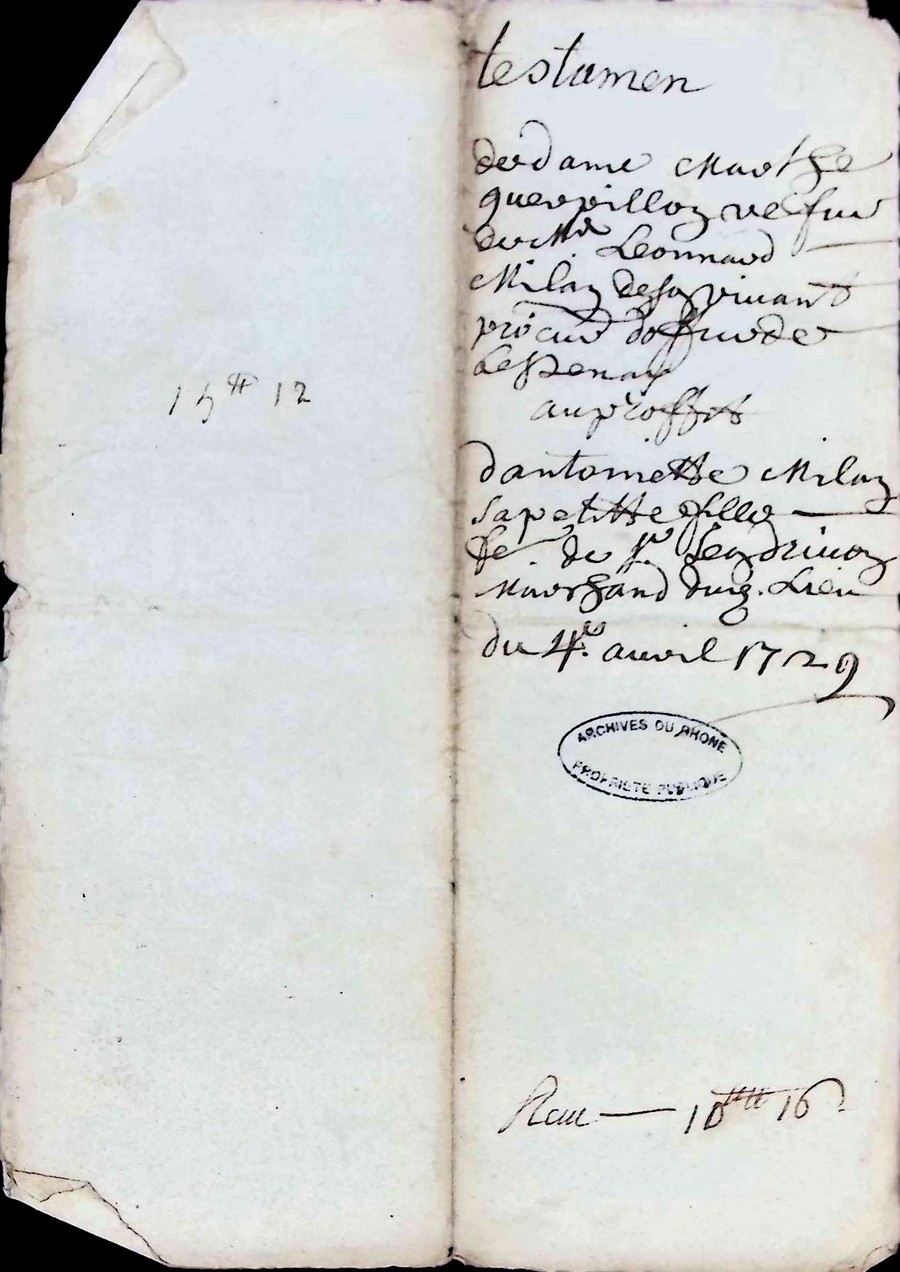 15 ₶ 12
testamen
de dame Marthe
guerpillon veſue
de Mr. Leonnard
Milan de son viuant
procur d'office de
au proffit
d'antoinette Milan
sa petitte fille
fe de Sr
Marchand dud. Lieu
du 4e. auril 1729
ARCHIVES DU RHONE
PROPRIETE PUBLIQUE
Reçu — 10 ₶ 16 s